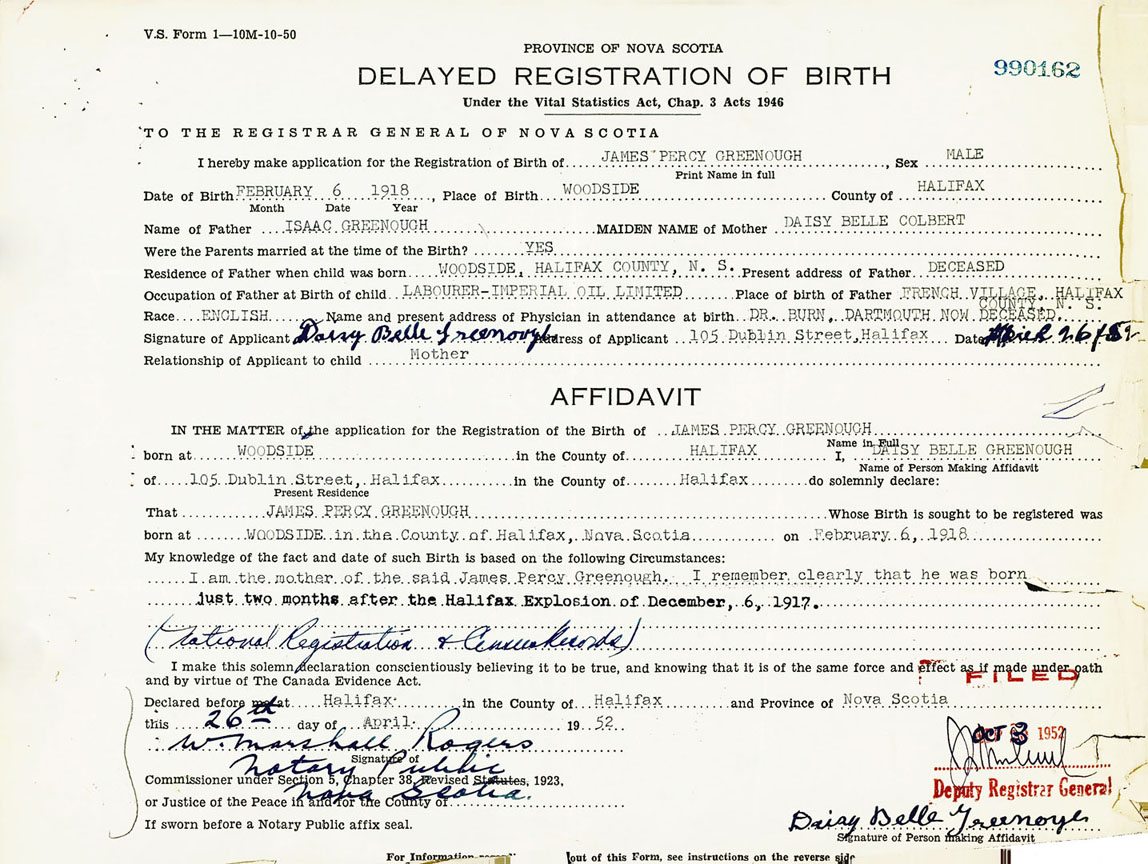 V.S. Form 1—10M-10-50
PROVINCE OF NOVA SCOTIA
990162
DELAYED REGISTRATION OF BIRTH
Under the Vital Statistics Act, Chap. 3 Acts 1946
TO THE REGISTRAR GENERAL OF NOVA SCOTIA
I hereby make application for the Registration of Birth of JAMES PERCY GREENOUGH, Sex MALE
Print Name in full
Date of Birth FEBRUARY 6 1918, Place of Birth WOODSIDE County of HALIFAX
Month Date Year
Name of Father ISAAC GREENOUGH MAIDEN NAME of Mother DAISY BELLE COLBERT
Were the Parents married at the time of the Birth? YES
Residence of Father when child was born WOODSIDE, HALIFAX COUNTY, N. S. Present address of Father DECEASED
Occupation of Father at Birth of child LABOURER-IMPERIAL OIL LIMITED Place of birth of Father FRENCH VILLAGE, HALIFAX
COUNTY, N. S.
Race ENGLISH Name and present address of Physician in attendance at birth DR. BURN, DARTMOUTH NOW DECEASED.
Signature of Applicant Daisy Belle Greenough Address of Applicant 105 Dublin Street, Halifax Date April 26/52
Relationship of Applicant to child Mother
AFFIDAVIT
IN THE MATTER of the application for the Registration of the Birth of JAMES PERCY GREENOUGH
Name in Full
born at WOODSIDE in the County of HALIFAX I, DAISY BELLE GREENOUGH
Name of Person Making Affidavit
of 105 Dublin Street, Halifax in the County of Halifax do solemnly declare:
Present Residence
That JAMES PERCY GREENOUGH Whose Birth is sought to be registered was
born at WOODSIDE in the County of Halifax, Nova Scotia on February 6, 1918
My knowledge of the fact and date of such Birth is based on the following Circumstances:
I am the mother of the said James Percy Greenough. I remember clearly that he was born
just two months after the Halifax Explosion of December, 6, 1917.
(National Registration & Census Records)
I make this solemn declaration conscientiously believing it to be true, and knowing that it is of the same force and effect as if made under oath
and by virtue of The Canada Evidence Act.
FILED
Declared before me at Halifax in the County of Halifax and Province of Nova Scotia
this 26th day of April 19 52
OCT 3 1952
W. Marshall Rogers
Signature of
Notary Public
Commissioner under Section 5, Chapter 38, Revised Statutes, 1923,
Nova Scotia.
Deputy Registrar General
or Justice of the Peace in and for the County of
Daisy Belle Greenough
If sworn before a Notary Public affix seal.
Signature of Person making Affidavit
For Information out of this Form, see instructions on the reverse side